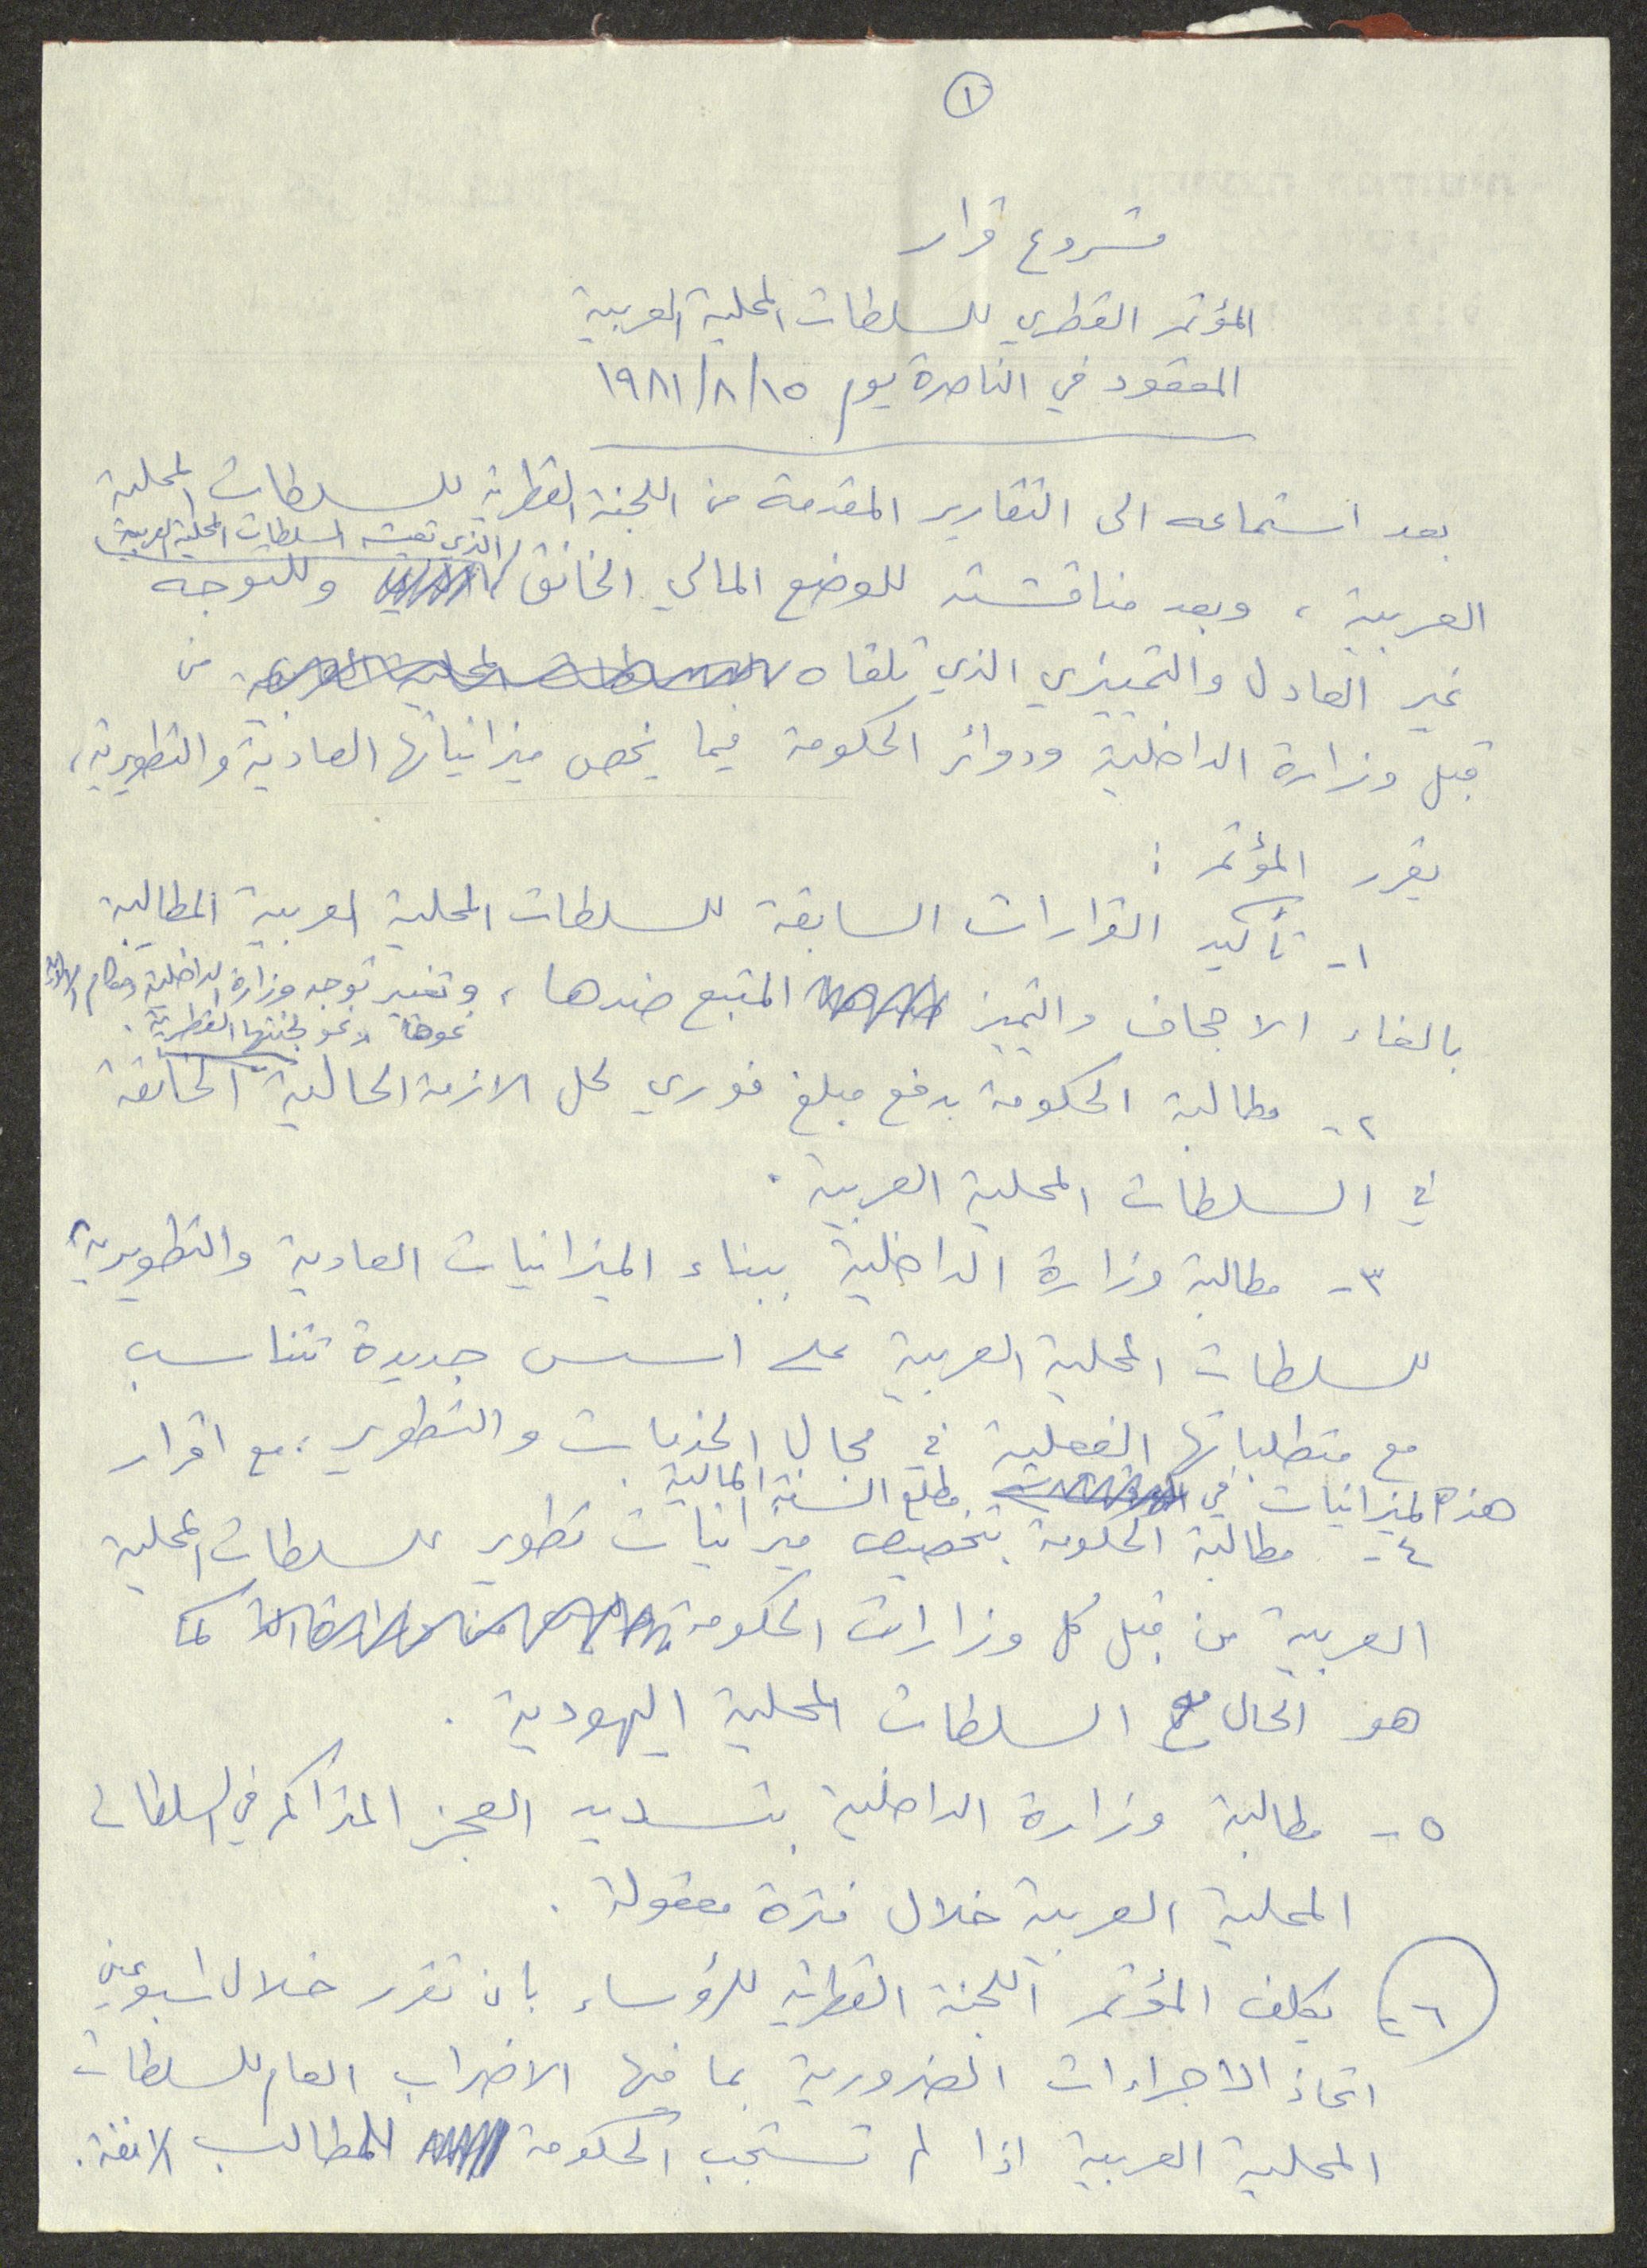 ١
مشروع قرار
المؤتمر القطري للسلطات المحلية العربية
المعقود في الناصرة يوم ١٩٨١/٨/١٥
بعد استماعه الى التقارير المقدمة من اللجنة القطرية للسلطات المحلية
الذي تعيشه السلطات المحلية العربية
العربية ، وبعد مناقشته للوضع المالي الخانق وللتوجه
غير العادل والتمييزي الذي تلقاه من
قبل وزارة الداخلية ودوائر الحكومة فيما يخص ميزانياتها العادية والتطويرية،
يقرر المؤتمر :
١- تأكيد القرارات السابقة للسلطات المحلية العربية المطالبة
بالغاء الاجحاف والتميز المتبع ضدها ، وتغيير توجه وزارة الداخلية وحكام الالوية
نحوها ونحو لجنتها القطرية .
٢- مطالبة الحكومة بدفع مبلغ فوري لحل الازمة الحالية الخانقة
في السلطات المحلية العربية .
٣- مطالبة وزارة الداخلية ببناء الميزانيات العادية والتطويرية
للسلطات المحلية العربية على اسس جديدة تتناسب
مع متطلباتها الفعلية في مجال الخدمات والتطوير ، مع اقرار
هذه الميزانيات في مطلع السنة المالية .
٤- مطالبة الحكومة بتخصيص ميزانيات تطوير للسلطات المحلية
العربية من قبل كل وزارات الحكومة كما
هو الحال مع السلطات المحلية اليهودية .
٥- مطالبة وزارة الداخلية بتسديد العجز المتراكم في السلطات
المحلية العربية خلال فترة معقولة .
٦- يكلف المؤتمر اللجنة القطرية للرؤساء بان تقرر خلال اسبوعين
اتخاذ الاجراءات الضرورية بما فيها الاضراب العام للسلطات
المحلية العربية اذا لم تستجب الحكومة للمطالب الانفة .